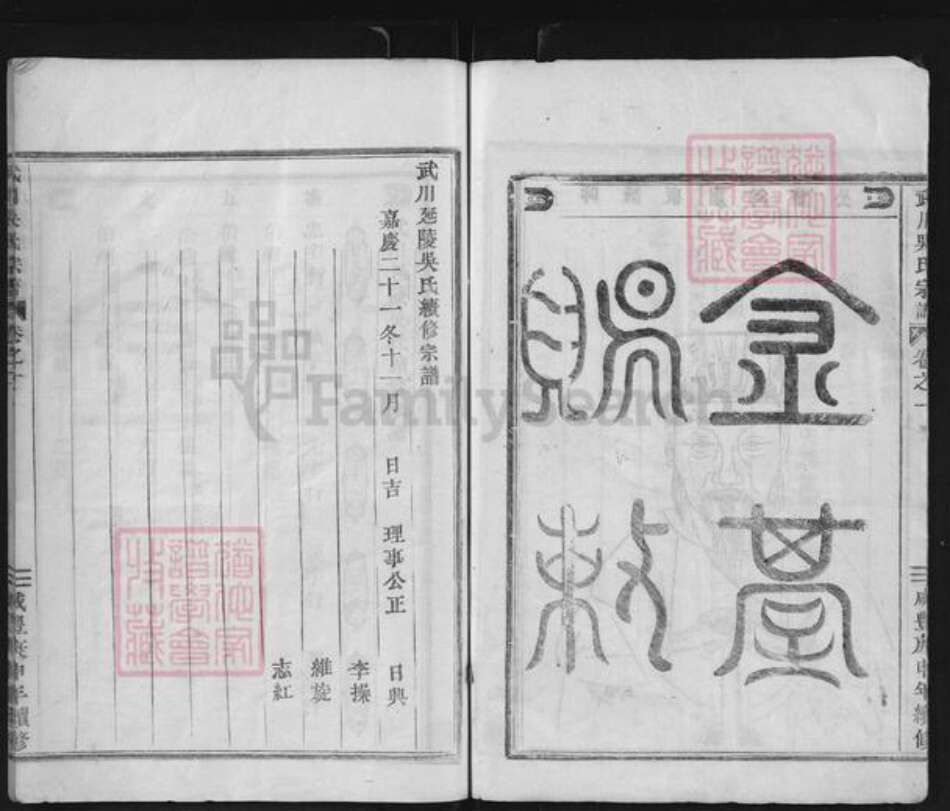 武川吳氏宗譜
卷之一
咸豐庚申年續修
金臺
敕賜
武川延陵吳氏續修宗譜
嘉慶二十一冬十一月 日吉 理事公正 日興
李操
維旋
志紅
武川吳氏宗譜
卷之一
咸豐庚申年續修
猶他家譜學會收藏
猶他家譜學會收藏
FamilySearch